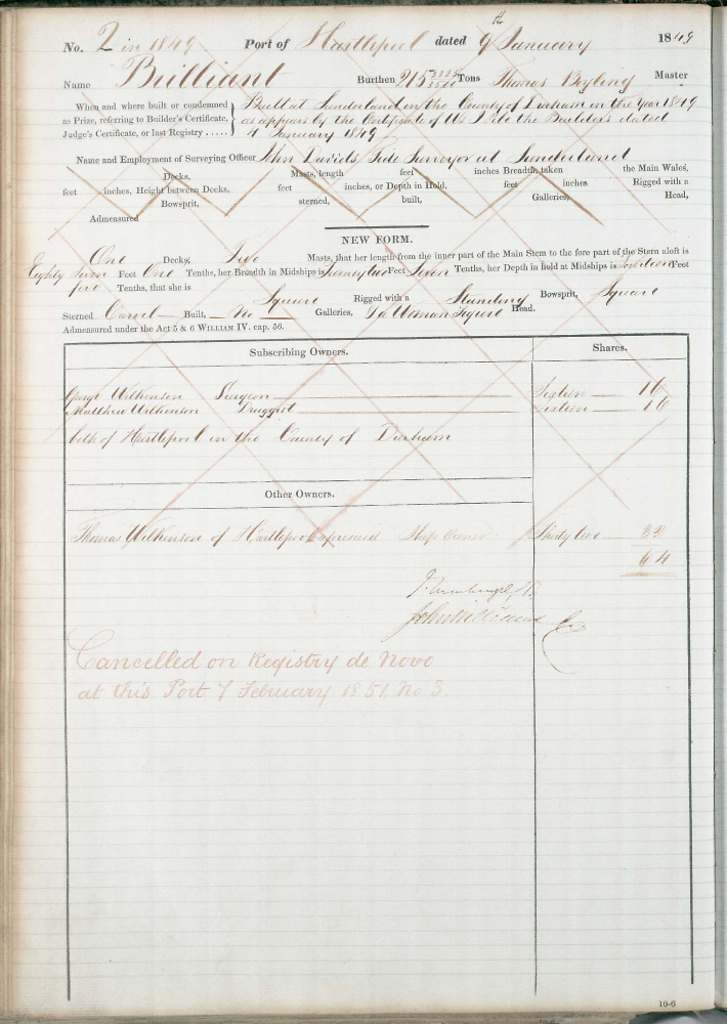 No. 2 in 1849 Port of Hartlepool dated 9th January 1849
Name Brilliant Burthen 215 Tons Thomas Boyling Master
When and where built or condemned
as Prize, referring to Builder's Certificate,
Judge's Certificate, or last Registry .....
Built at Sunderland in the County of Durham in the Year 1849
as appears by the Certificate of Wm Pile the Builder dated
4 January 1849
Name and Employment of Surveying Officer John Davids Tide Surveyor at Sunderland
Decks, Masts, length feet inches Breadth taken the Main Wales,
feet inches, Height between Decks, feet inches, or Depth in Hold, feet inches Rigged with a
Bowsprit, sterned, built, Galleries, Head,
Admeasured
NEW FORM.
One Decks, Two Masts, that her length from the inner part of the Main Stem to the fore part of the Stern aloft is
Eighty seven Feet One Tenths, her Breadth in Midships is Twenty two Feet Seven Tenths, her Depth in hold at Midships is Feet
five Tenths, that she is Square Rigged with a Standing Bowsprit, Square
Sterned Carvel Built, No Galleries, Woman Figure Head.
Admeasured under the Act 5 & 6 WILLIAM IV. cap. 56.
Subscribing Owners. Shares.
George Wilkinson Surgeon Sixteen 16
Matthew Wilkinson Druggist Sixteen 16
both of Hartlepool in the County of Durham
Other Owners.
Thomas Wilkinson of Hartlepool aforesaid Ship Owner Thirty two 32
64
Cancelled on Registry de Novo
at this Port 7 February 1851, No 3.
10-6